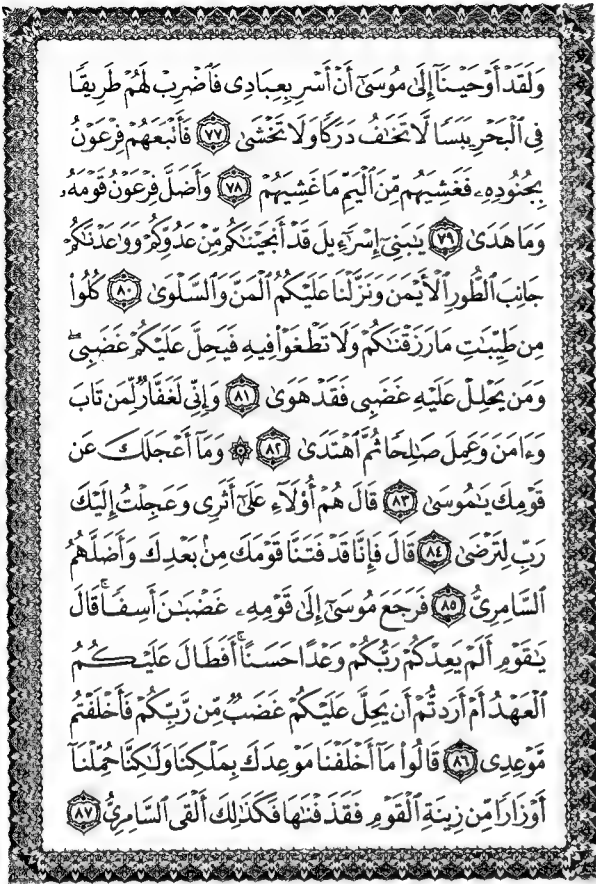 وَلَقَدْ أَوْحَيْنَآ إِلَىٰ مُوسَىٰٓ أَنْ أَسْرِ بِعِبَادِى فَٱضْرِبْ لَهُمْ طَرِيقًا
فِى ٱلْبَحْرِ يَبَسًا لَّا تَخَٰفُ دَرَكًا وَلَا تَخْشَىٰ ٧٧ فَأَتْبَعَهُمْ فِرْعَوْنُ
بِجُنُودِهِۦ فَغَشِيَهُم مِّنَ ٱلْيَمِّ مَا غَشِيَهُمْ ٧٨ وَأَضَلَّ فِرْعَوْنُ قَوْمَهُۥ
وَمَا هَدَىٰ ٧٩ يَٰبَنِىٓ إِسْرَٰٓءِيلَ قَدْ أَنجَيْنَٰكُم مِّنْ عَدُوِّكُمْ وَوَٰعَدْنَٰكُمْ
جَانِبَ ٱلطُّورِ ٱلْأَيْمَنَ وَنَزَّلْنَا عَلَيْكُمُ ٱلْمَنَّ وَٱلسَّلْوَىٰ ٨٠ كُلُوا۟
مِن طَيِّبَٰتِ مَا رَزَقْنَٰكُمْ وَلَا تَطْغَوْا۟ فِيهِ فَيَحِلَّ عَلَيْكُمْ غَضَبِى ۖ
وَمَن يَحْلِلْ عَلَيْهِ غَضَبِى فَقَدْ هَوَىٰ ٨١ وَإِنِّى لَغَفَّارٌ لِّمَن تَابَ
وَءَامَنَ وَعَمِلَ صَٰلِحًا ثُمَّ ٱهْتَدَىٰ ٨٢ ۞ وَمَآ أَعْجَلَكَ عَن
قَوْمِكَ يَٰمُوسَىٰ ٨٣ قَالَ هُمْ أُو۟لَآءِ عَلَىٰٓ أَثَرِى وَعَجِلْتُ إِلَيْكَ
رَبِّ لِتَرْضَىٰ ٨٤ قَالَ فَإِنَّا قَدْ فَتَنَّا قَوْمَكَ مِنۢ بَعْدِكَ وَأَضَلَّهُمُ
ٱلسَّامِرِىُّ ٨٥ فَرَجَعَ مُوسَىٰٓ إِلَىٰ قَوْمِهِۦ غَضْبَٰنَ أَسِفًا ۚ قَالَ
يَٰقَوْمِ أَلَمْ يَعِدْكُمْ رَبُّكُمْ وَعْدًا حَسَنًا ۚ أَفَطَالَ عَلَيْكُمُ
ٱلْعَهْدُ أَمْ أَرَدتُّمْ أَن يَحِلَّ عَلَيْكُمْ غَضَبٌ مِّن رَّبِّكُمْ فَأَخْلَفْتُم
مَّوْعِدِى ٨٦ قَالُوا۟ مَآ أَخْلَفْنَا مَوْعِدَكَ بِمَلْكِنَا وَلَٰكِنَّا حُمِّلْنَآ
أَوْزَارًا مِّن زِينَةِ ٱلْقَوْمِ فَقَذَفْنَٰهَا فَكَذَٰلِكَ أَلْقَى ٱلسَّامِرِىُّ ٨٧